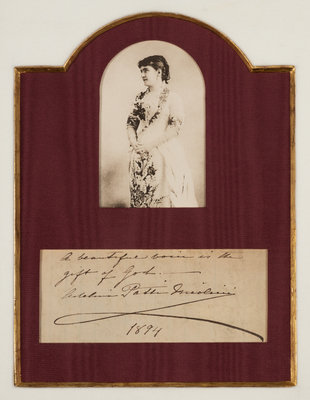 A beautiful voice is the
gift of God. —
Adelina Patti Nicolini
1894